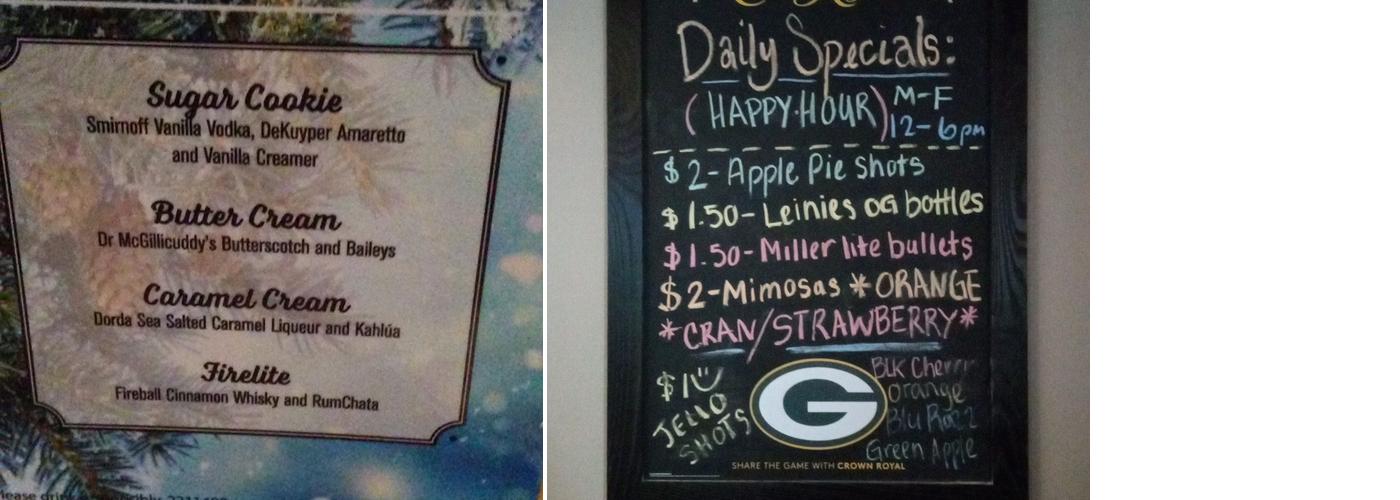 Sugar Cookie
Smirnoff Vanilla Vodka, DeKuyper Amaretto
and Vanilla Creamer
Butter Cream
Dr McGillicuddy's Butterscotch and Baileys
Caramel Cream
Dorda Sea Salted Caramel Liqueur and Kahlúa
Firelite
Fireball Cinnamon Whisky and RumChata
Daily Specials:
(HAPPY·HOUR) M-F
12-6pm
$2-Apple Pie shots
$1.50-Leinies OG bottles
$1.50-Miller lite bullets
$2-Mimosas *ORANGE
*CRAN/STRAWBERRY*
$1
JELLO
SHOTS
G
Blk Cherry
Orange
Blu Razz
Green Apple
SHARE THE GAME WITH CROWN ROYAL